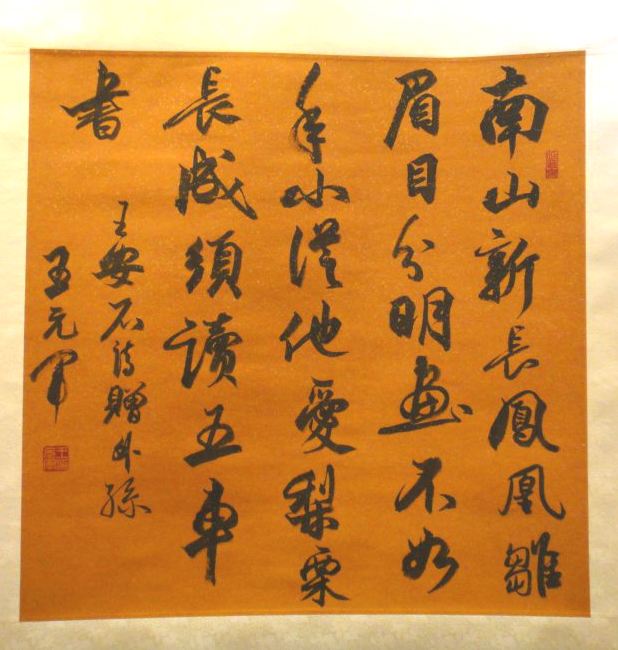 南山新長鳳凰雛
眉目分明画不如
年小從他愛梨栗
長成須讀五車
書
王安石詩贈外孫
王元軍